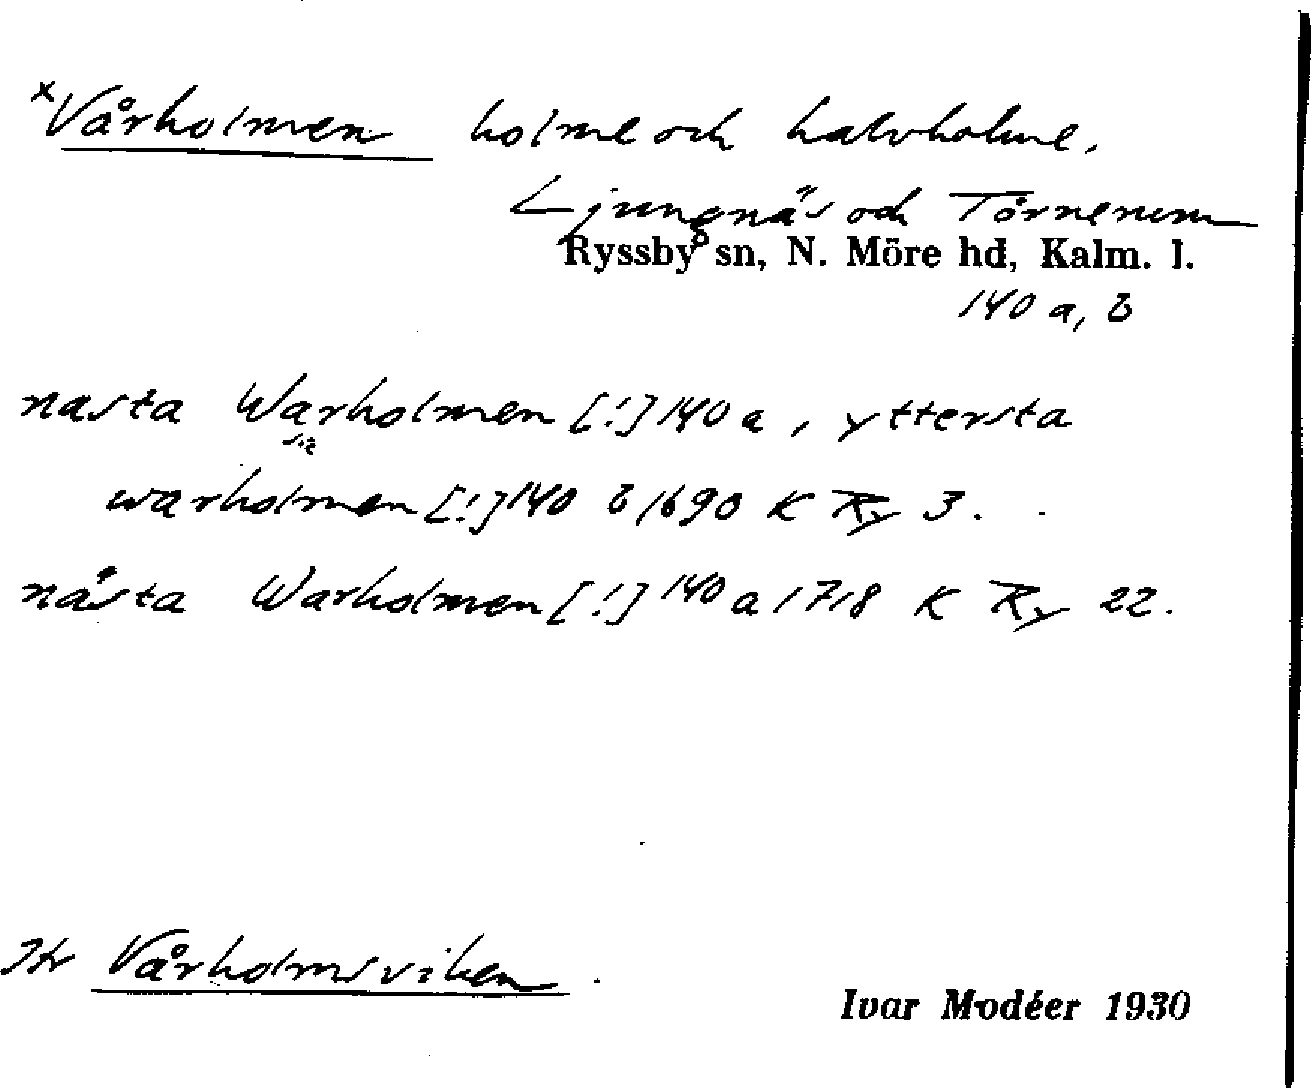 ×Vårholmen holme och halvholme,
Ljungnäs och Törnerum
Ryssby sn, N. Möre hd, Kalm. l.
140 a, b
nasta Warholmen [!] 140 a, yttersta
sic
warholmen [!] 140 b 1690 K Ry 3.
nästa Warholmen [!] 140 a 1718 K Ry 22.
Jfr Vårholmsviken.
Ivar Modéer 1930